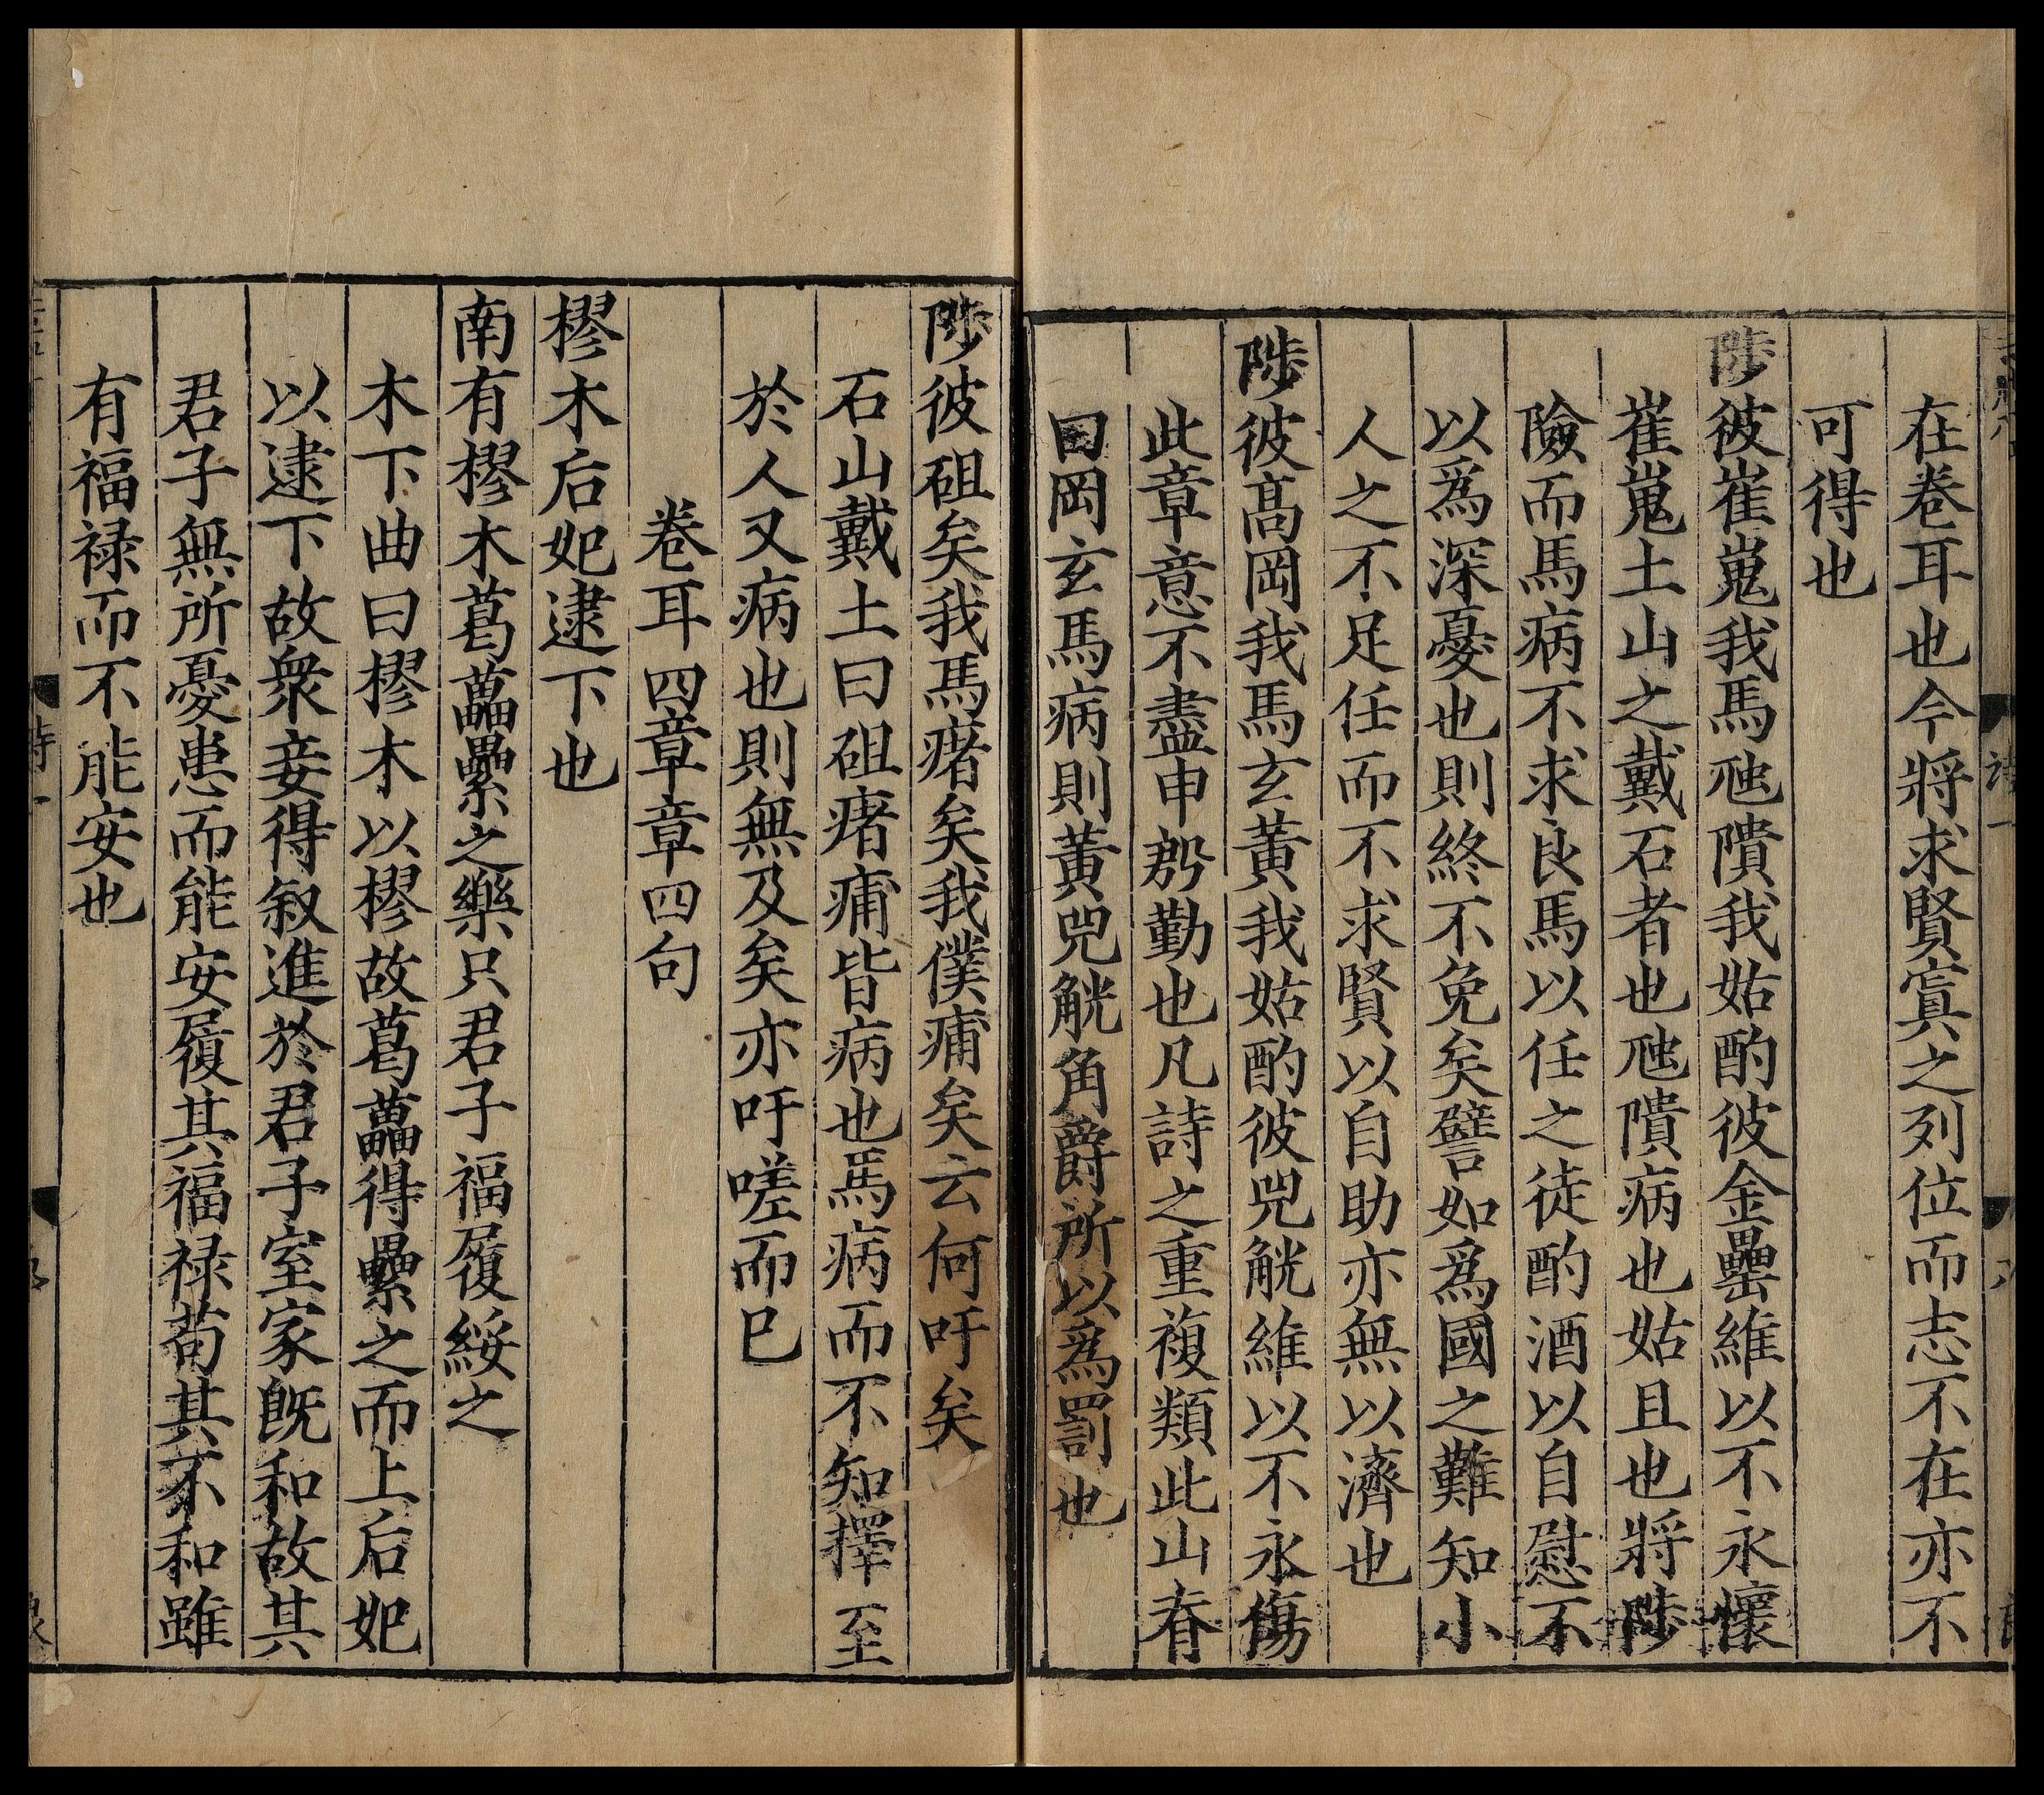 在卷耳也今將求賢寘之列位而志不在亦不
可得也
陟彼崔嵬我馬虺隤我姑酌彼金罍維以不永懷
崔嵬土山之戴石者也虺隤病也姑且也將陟
險而馬病不求良馬以任之徒酌酒以自慰不
以爲深憂也則終不免矣譬如爲國之難知小
人之不足任而不求賢以自助亦無以濟也
陟彼髙岡我馬玄黃我姑酌彼兕觥維以不永傷
此章意不盡申慇勤也凡詩之重複類此山脊
曰岡玄馬病則黃兕觥角爵所以爲罰也
陟彼砠矣我馬瘏矣我僕痡矣云何吁矣
石山戴土曰砠瘏痡皆病也馬病而不知擇至
於人又病也則無及矣亦吁嗟而已
卷耳四章章四句
樛木后妃逮下也
南有樛木葛藟纍之樂只君子福履綏之
木下曲曰樛木以樛故葛藟得纍之而上后妃
以逮下故衆妾得叙進於君子室家既和故其
君子無所憂患而能安履其福禄苟其不和雖
有福禄而不能安也